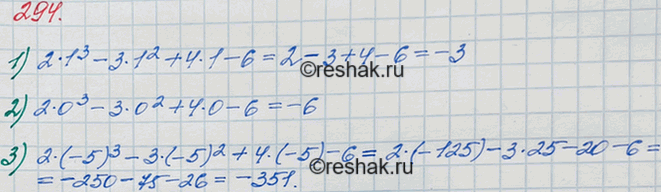 294.
1) 2·1³-3·1²+4·1-6=2-3+4-6=-3
©reshak.ru
2) 2·0³-3·0²+4·0-6=-6
©reshak.ru
3) 2·(-5)³-3·(-5)²+4·(-5)-6=2·(-125)-3·25-20-6=
=-250-75-26=-351.
©reshak.ru